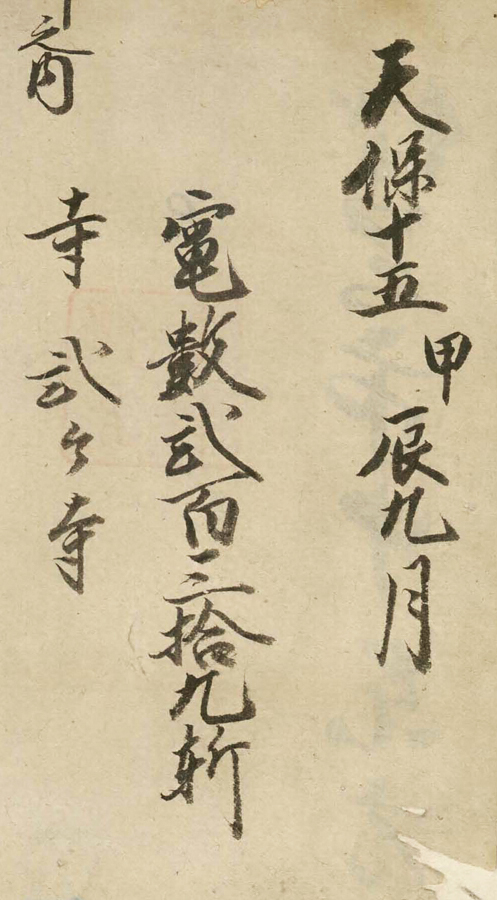 天保十五甲辰九月
竃数弐百三拾九軒
之内
寺弐ケ寺